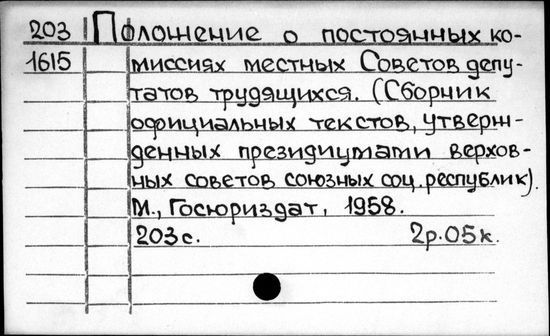 203 Положение о постоянных ко-
1615 миссиях местных Советов депу-
татов трудящихся. (Сборник
официальных текстов, утверж-
денных президиумами верхов-
ных советов союзных соц. республик).
М., Госюриздат, 1958.
203 с. 2р.05к.